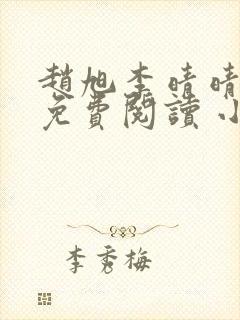 趙旭李晴晴
免費閱讀 小
李秀梅